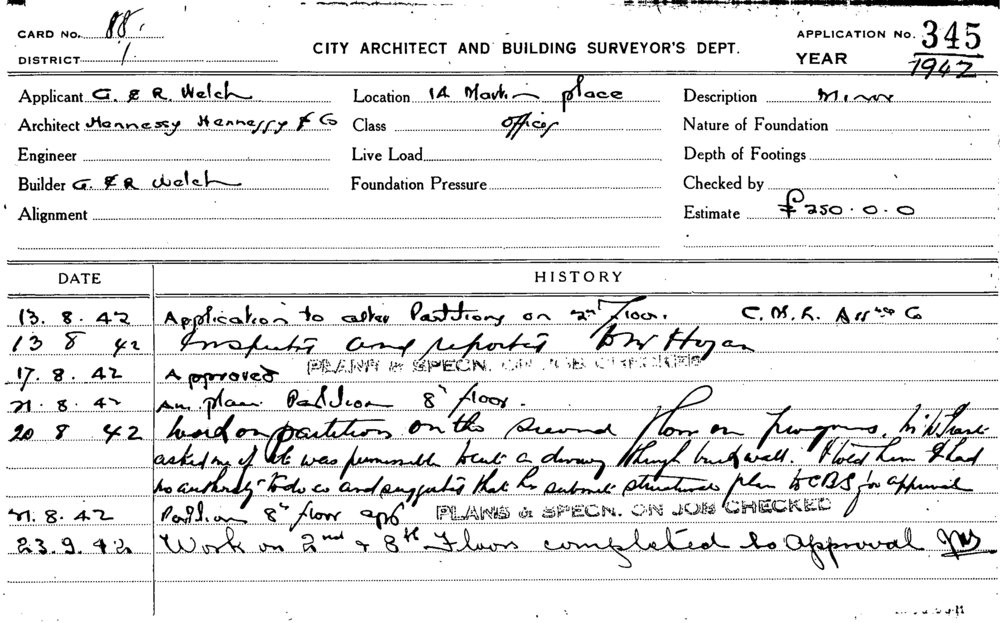 CARD No. 88.
DISTRICT 1
CITY ARCHITECT AND BUILDING SURVEYOR'S DEPT.
APPLICATION No. 345
YEAR 1942
Applicant G. & R. Welch
Location 14 Martin place
Description Minor
Architect Hennessy Hennessy & Co
Class offices
Nature of Foundation
Engineer
Live Load
Depth of Footings
Builder G. & R Welch
Foundation Pressure
Checked by
Alignment
Estimate £250.0.0
DATE HISTORY
13.8.42 Application to alter Partitions on 2nd Floor. C.M.L. Assce Co
13 8 42 Inspected and reported
17.8.42 Approved PLANS & SPECN. ON JOB CHECKED
21.8.42 Am. plan Partition 8th floor.
20 8 42 Work on partition on the second floor in progress. Mr
asked me if it was permissible to cut a doorway through brick wall. I told him I had
no authority to do so and suggested that he submit structural plan to CBS for approval
21.8.42 Partition 8th floor apd PLANS & SPECN. ON JOB CHECKED
23.9.42 Work on 2nd & 8th Floors completed to Approval